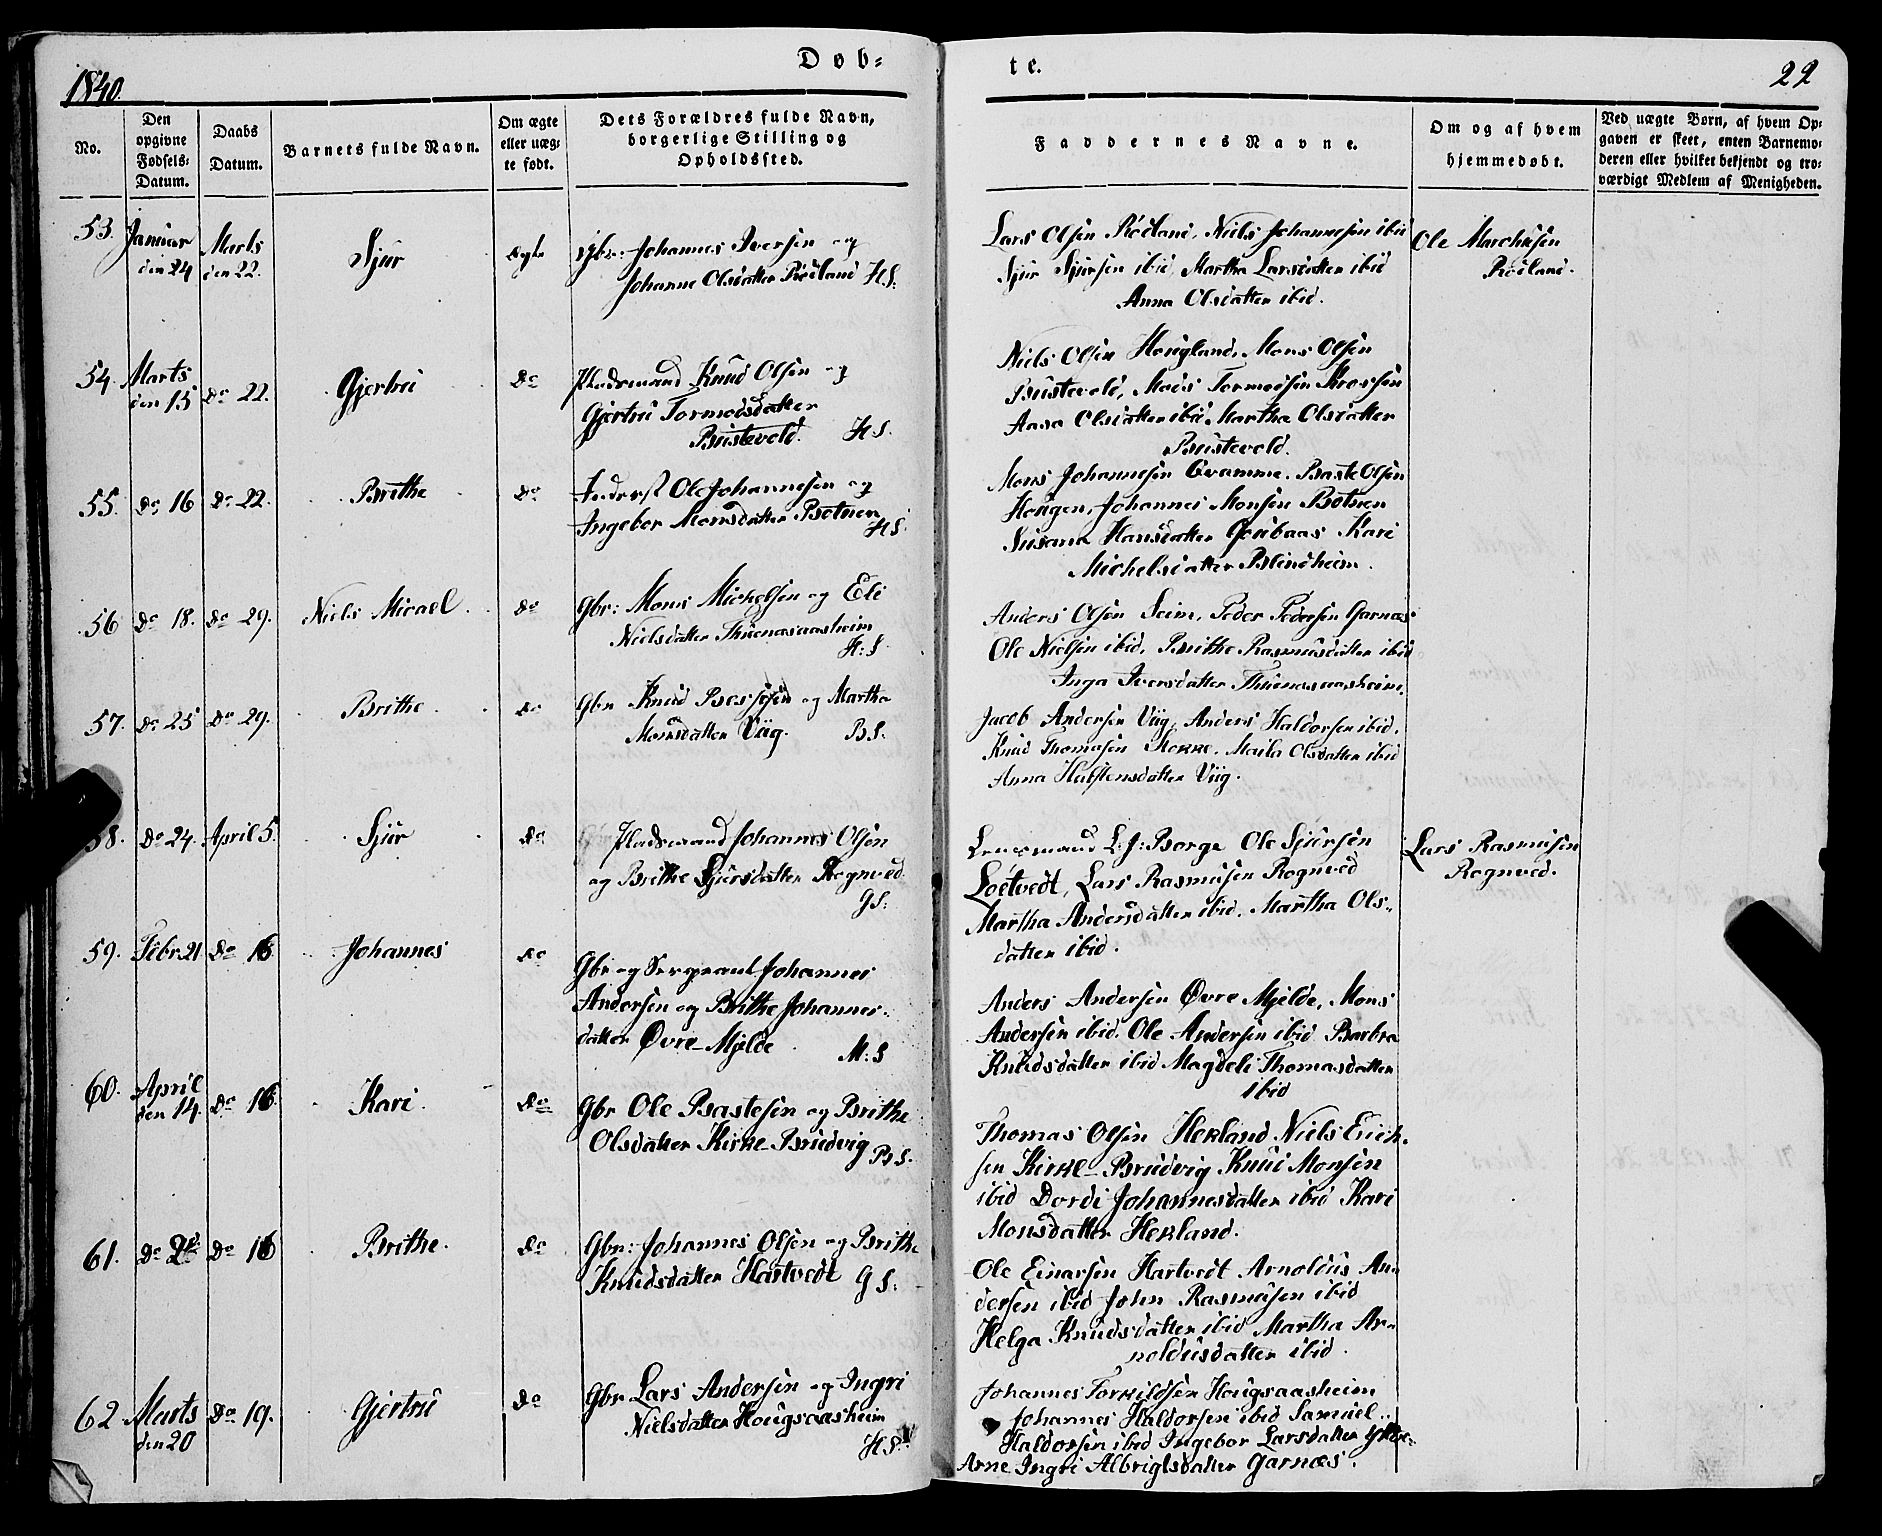 1840.
Døb-
te.
22
No.
Den opgivne Fødsels-Datum.
Daabs Datum.
Barnets fulde Navn.
Om ægte eller uægte født.
Dets Forældres fulde Navn,
borgerlige Stilling og
Opholdssted.
Faddernes Navne.
Om og af hvem
hjemmedøbt.
Ved uægte Børn, af hvem Op-
gaven er skeet, enten Barnemo-
deren eller hvilket bekjendt og tro-
værdigt Medlem af Menigheden.
53. Januar den 24 Marts den 22. Sjur ægte Gbr: Johannes Iversen og
Johanne Olsdatter Rødland H.S:
Lars Olsen Rødland, Niels Johannesen ibid
Sjur Sjursen ibid, Martha Larsdatter ibid
Anna Olsdatter ibid.
Ole
Rødland.
54. Marts den 15 Do 22. Gjertru Do Pladsmand Knud Olsen og
Gjertru Tormodsdatter
Bustevold. H.S.
Niels Olsen Hougland, Mons Olsen
Bustevold, Mads Tormodsen Krossen
Anna Olsdatter ibid, Martha Olsdatter
Bustevold.
55. Do 16 Do 22. Brithe Do Inderst Ole Johannesen og
Ingebor Monsdatter Botnen
H.S.
Mons Johannesen Gramme, Baste Olsen
Hougen, Johannes Monsen Botnen
Susana Hansdatter Kari
Michelsdatter Blindheim.
56 Do 18. Do 29. Niels Micael Do Gbr: Mons Mickelsen og Eli
Nielsdatter Thuenesaasheim
H:S.
Anders Olsen Seim, Peder Pedersen Garnæs
Ole Nielsen ibid, Brithe Rasmusdatter ibid
Inga Iversdatter Thuenesaasheim.
57. Do 25 Do 29. Brithe Do Gbr Knud og Martha
Monsdatter Viig. B.S.
Jacob Andersen Viig, Anders Haldorsen ibid.
Knud Thomasen Maila Olsdatter ibid
Anna Halstensdatter Viig.
58. Do 24. April 5. Sjur Do Pladsmand Johannes Olsen
og Brithe Sjursdatter Rognved.
G.S.
Lensmand L.J: Borge Ole Sjursen
Loetvedt, Lars Rasmusen Rognved
Martha Andersdatter ibid. Martha Ols-
datter ibid.
Lars Rasmusen
Rognved.
59. Febr. 21 Do 16 Johannes Do
Gbr og Sergeant Johannes
Andersen og Brithe Johannes-
datter Øvre-Mjelde. M.S
Anders Andersen Øvre Mjelde, Mons
Andersen ibid. Ole Andersen ibid Barbra
Knudsdatter ibid Magdeli Thomasdatter
ibid
60. April den 14. Do 16 Kari. Do Gbr Ole Bastesen og Brithe
Olsdatter Kirke-Bruvig B.S.
Thomas Olsen Hekland Niels Erich-
sen Kirke-Brudvig Knud Monsen
ibid Dordi Johannesdatter ibid Kari
Monsdatter Hekland.
61. Do Do 16 Brithe. Do Gbr: Johannes Olsen og Brithe
Knudsdatter Hartvedt G.S.
Ole Einarsen Hartvedt Arnoldus An-
dersen ibid John Rasmusen ibid
Helga Knudsdatter ibid Martha Ar-
noldusdatter ibid.
62 Marts den 20 Do 19. Gjertru Do Gbr Lars Andersen og Ingri
Nielsdatter Hougsaasheim
H.S.
Johannes Torkildsen Hougsaasheim
Johannes Haldorsen ibid Samuel
Haldorsen ibid Ingebor Larsdatter Yttre-
Arne Ingri Albrigtsdatter Garnæs.